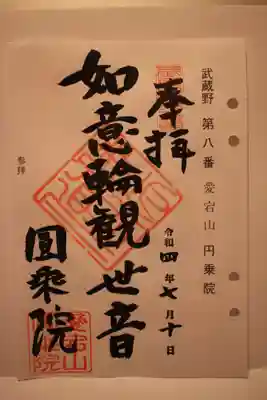 武蔵野 第八番 愛宕山 円乗院
奉拝
令和四年七月十日
如意輪観世音
圓乗院
参拝